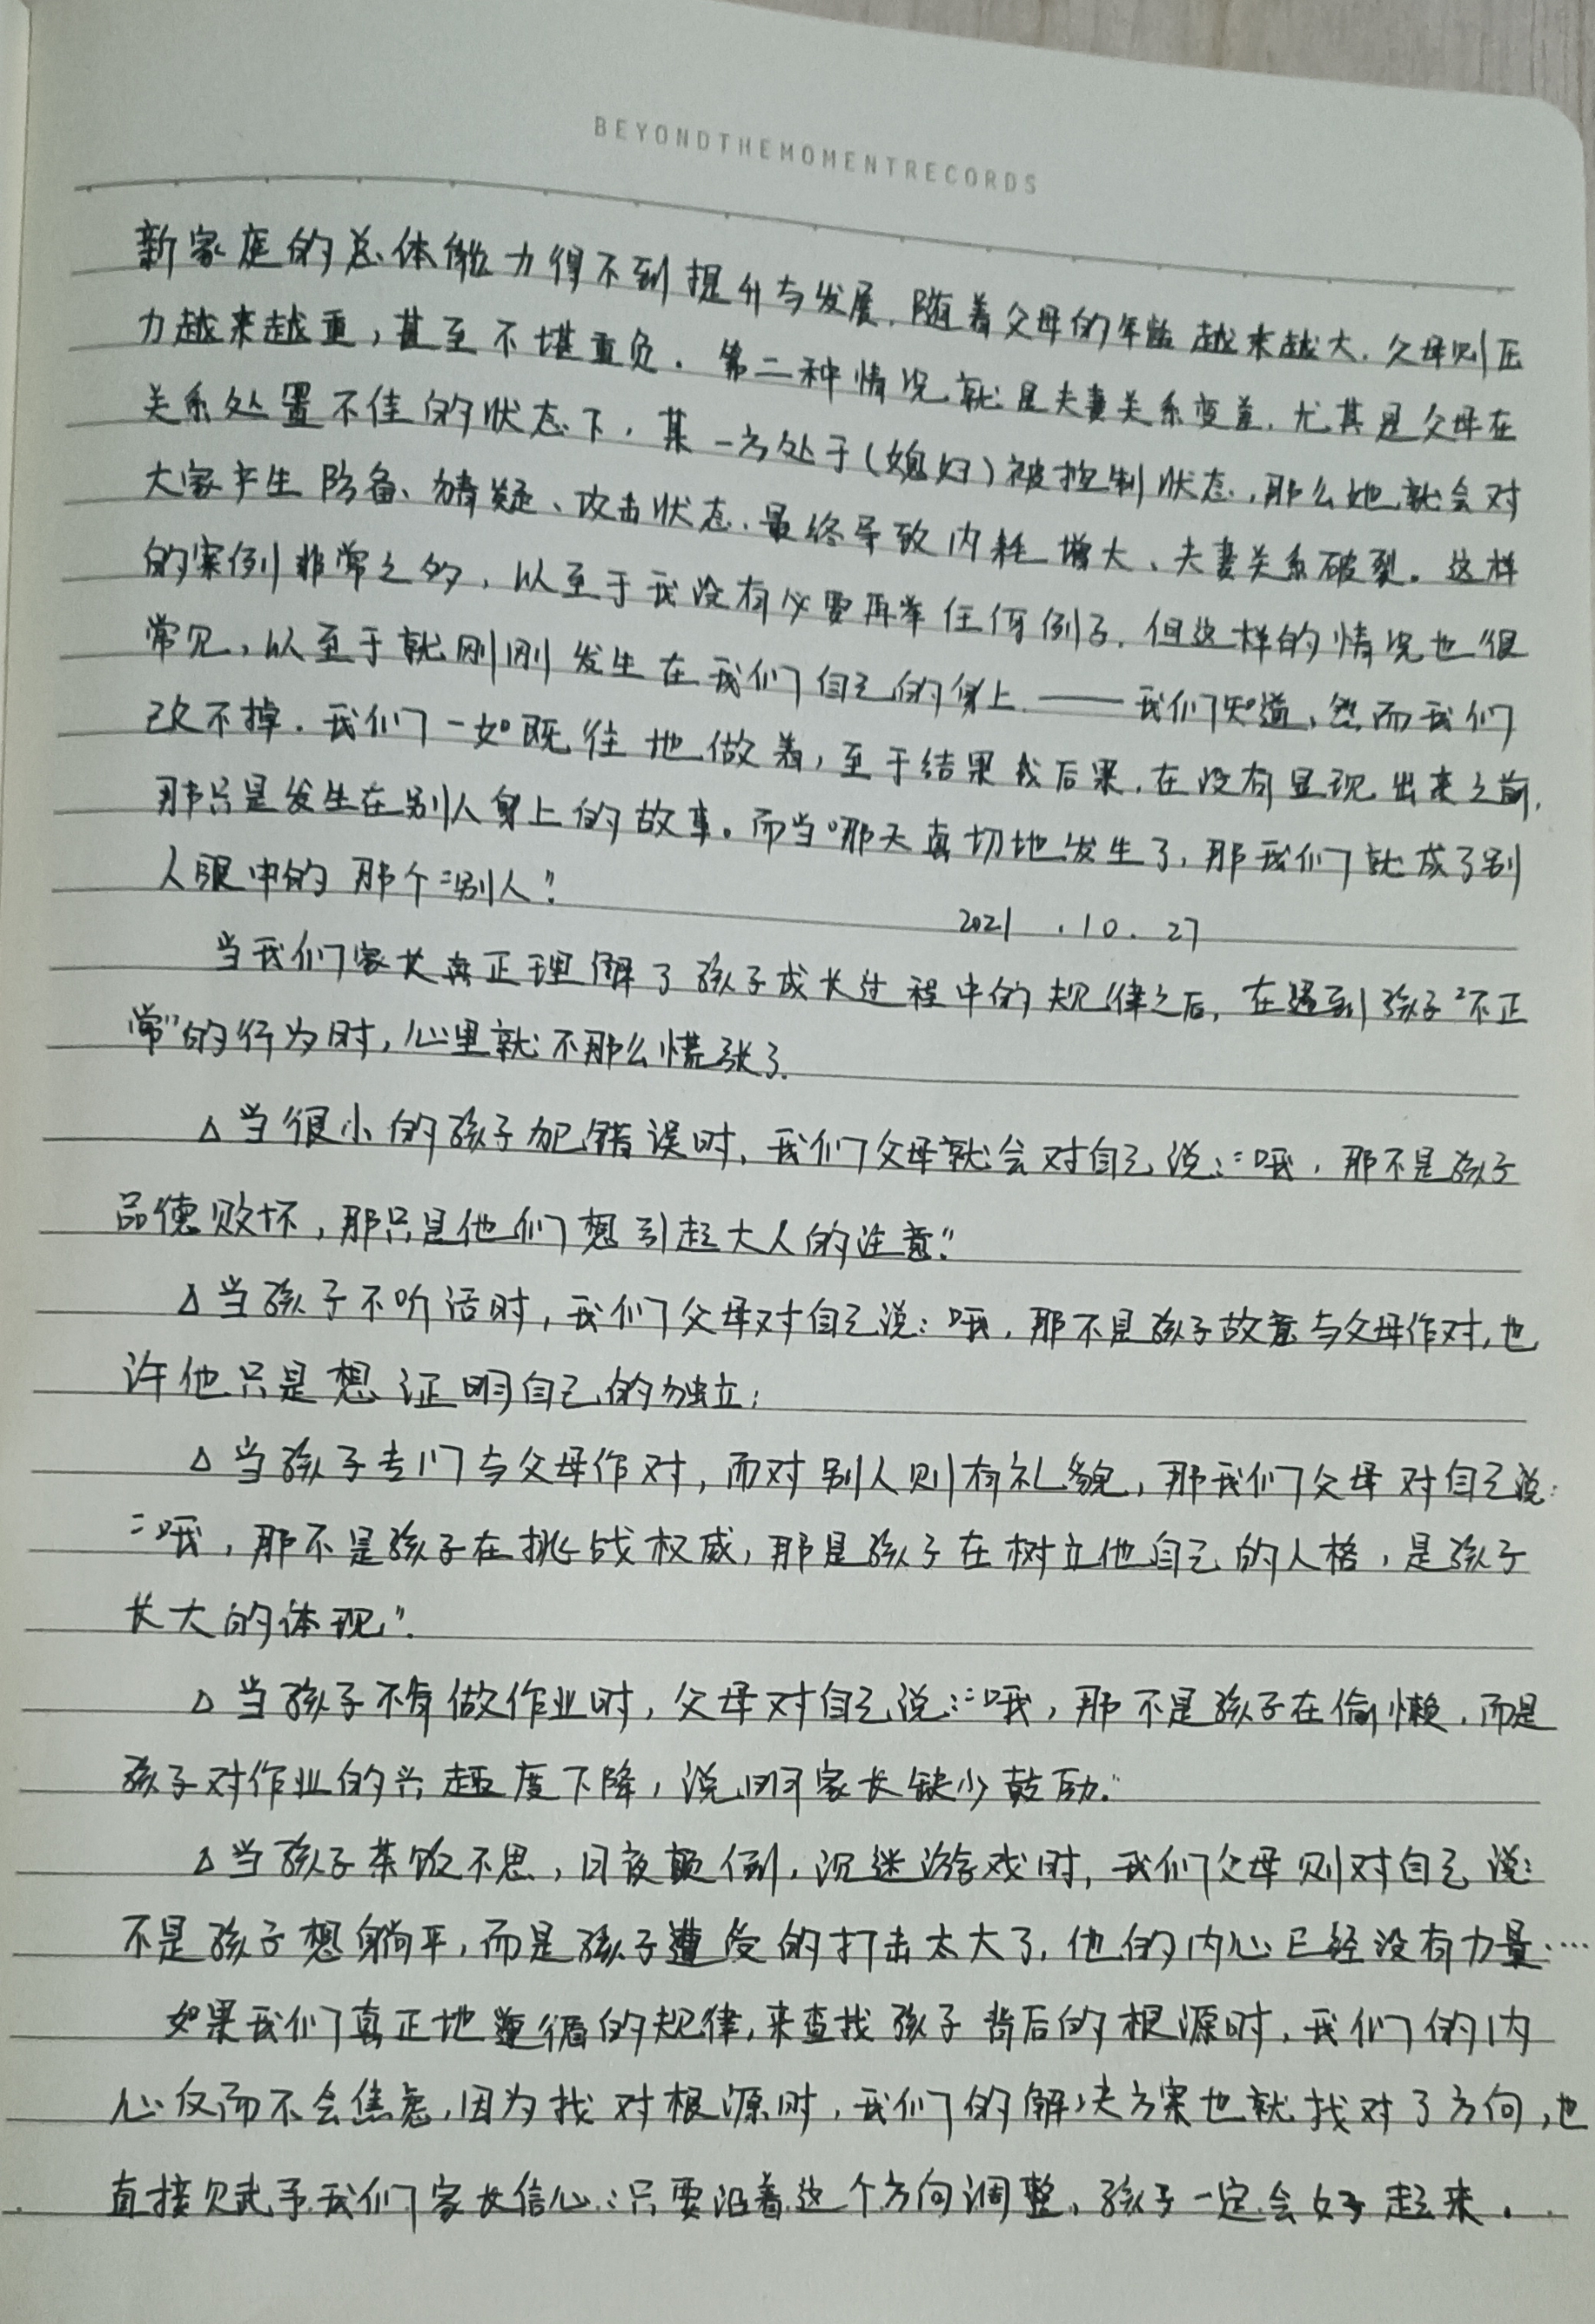 BEYONDTHEMOMENTRECORDS
新家庭的总体能力得不到提升与发展.随着父母的年龄越来越大.父母则压
力越来越重,甚至不堪重负.第二种情况就是夫妻关系变差.尤其是父母在
关系处置不佳的状态下.某一方处于(媳妇)被控制状态,那么她就会对
大家产生防备、猜疑、攻击状态.最终导致内耗增大、夫妻关系破裂。这样
的案例非常之多,以至于我没有必要再举任何例子.但这样的情况也很
常见,以至于就刚刚发生在我们自己的身上——我们知道,然而我们
改不掉.我们一如既往地做着,至于结果或后果.在没有显现出来之前,
那只是发生在别人身上的故事。而当哪天真切地发生了,那我们就成了别
人眼中的那个“别人”.
2021.10.27
当我们家长真正理解了孩子成长过程中的规律之后,在遇到孩子“不正
常”的行为时,心里就不那么慌张了.
△当很小的孩子犯错误时,我们父母就会对自己说:“哦,那不是孩子
品德败坏,那只是他们想引起大人的注意.”
△当孩子不听话时,我们父母对自己说:哦,那不是孩子故意与父母作对,也
许他只是想证明自己的独立;
△当孩子专门与父母作对,而对别人则有礼貌,那我们父母对自己说:
“哦,那不是孩子在挑战权威,那是孩子在树立他自己的人格,是孩子
长大的体现”.
△当孩子不做作业时,父母对自己说:“哦,那不是孩子在偷懒,而是
孩子对作业的兴趣度下降,说明家长缺少鼓励.”
△当孩子茶饭不思,日夜颠倒,沉迷游戏时,我们父母则对自己说:
不是孩子想躺平,而是孩子遭受的打击太大了,他的内心已经没有力量……
如果我们真正地遵循的规律,来查找孩子背后的根源时,我们的内
心反而不会焦虑,因为找对根源时,我们的解决方案也就找对了方向,也
直接赋予我们家长信心:只要沿着这个方向调整,孩子一定会好起来.